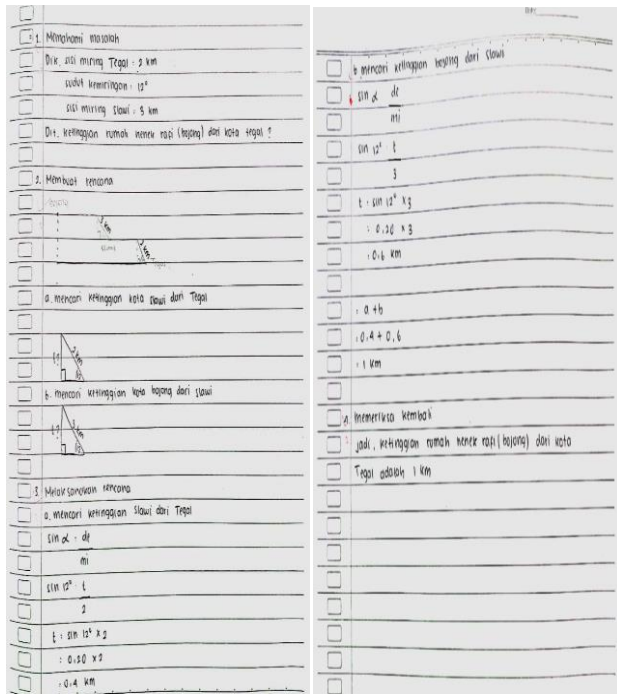 1. Memahami masalah
Dik. sisi miring Tegal : 2 km
sudut kemiringan : 12°
sisi miring slawi : 3 km
Dit. ketinggian rumah nenek rafi (bojong) dari kota tegal ?
2. Membuat rencana
3 km
2 km
a. mencari ketinggian kota slawi dari Tegal
t?
2 km
b. mencari ketinggian kota bojong dari slawi
t?
3 km
3. Melaksanakan rencana
a. mencari ketinggian slawi dari Tegal
sin α = de
mi
sin 12° = t
2
t = sin 12° x 2
= 0,20 x 2
= 0,4 km
b mencari ketinggian bojong dari slawi
sin α de
mi
sin 12° = t
3
t = sin 12° x 3
= 0,20 x 3
= 0,6 km
= a + b
= 0,4 + 0,6
= 1 km
4. memeriksa kembali
jadi, ketinggian rumah nenek rafi (bojong) dari kota
Tegal adalah 1 km